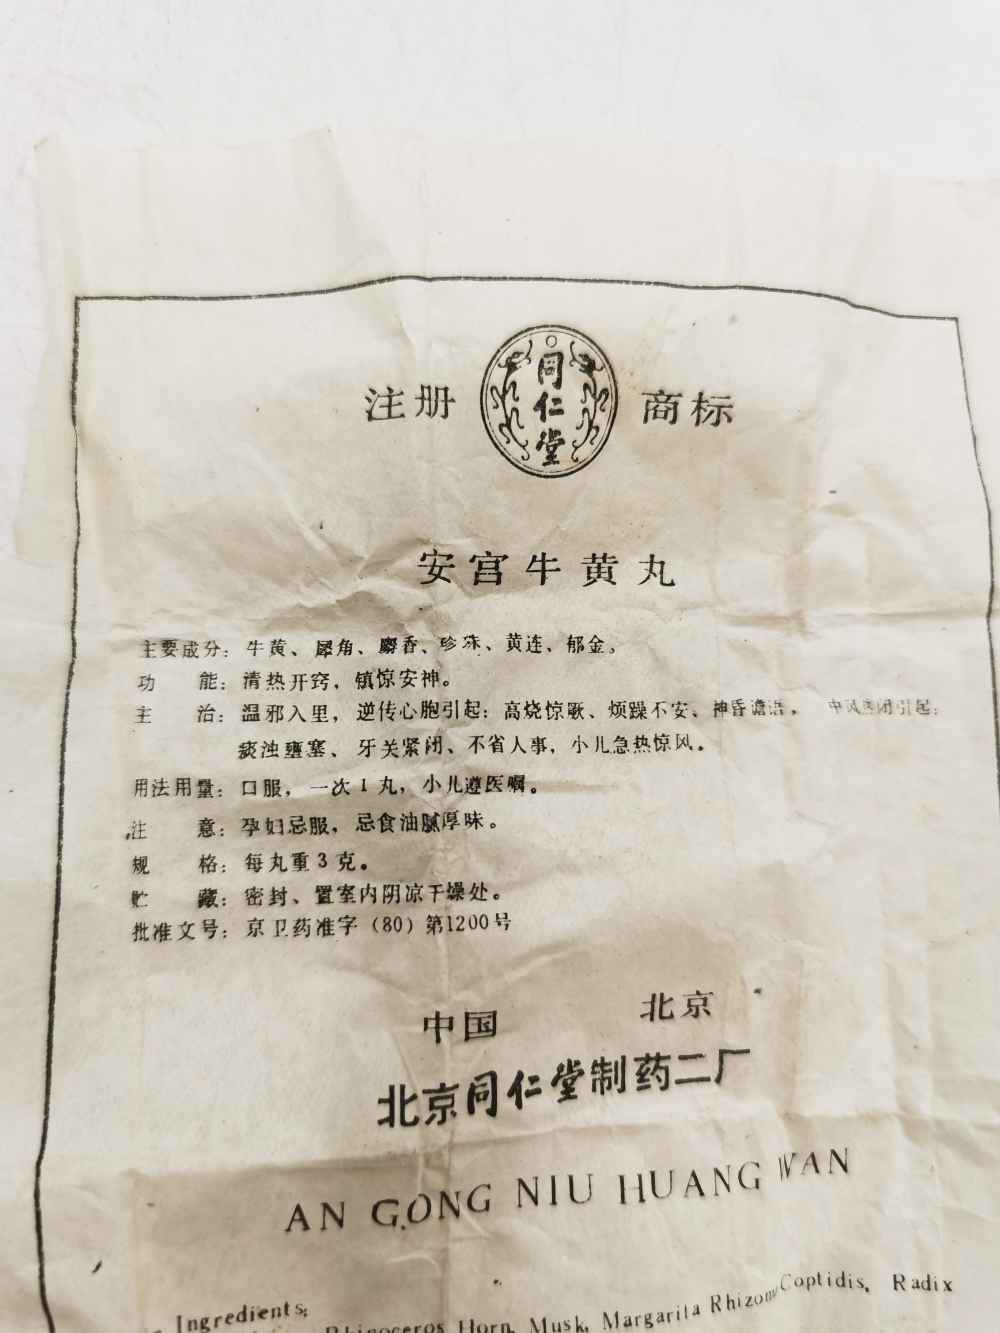 注册 同仁堂 商标
安宫牛黄丸
主要成分：牛黄、犀角、麝香、珍珠、黄连、郁金。
功 能：清热开窍，镇惊安神。
主 治：温邪入里，逆传心胞引起：高烧惊歌、烦躁不安、神昏谵语。 中风窍闭引起：
痰浊壅塞、牙关紧闭、不省人事，小儿急热惊风。
用法用量：口服，一次1丸，小儿遵医嘱。
注 意：孕妇忌服，忌食油腻厚味。
规 格：每丸重3克。
贮 藏：密封、置室内阴凉干燥处。
批准文号：京卫药准字（80）第1200号
中国 北京
北京同仁堂制药二厂
AN GONG NIU HUANG WAN
Ingredients:
Rhinoceros Horn, Musk, Margarita Rhizoma Coptidis, Radix